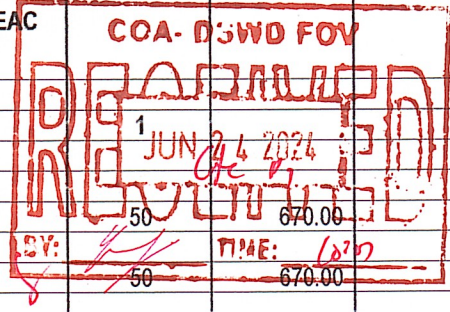 EAC
COA- DSWD FOV
RECEIVED
1
JUN 24 2024
50 670.00
BY: TIME:
50 670.00